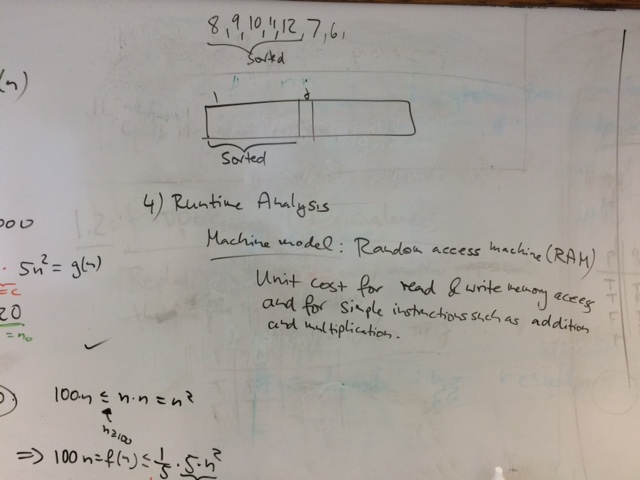 8, 9, 10, 11, 12, 7, 6,
Sorted
1 j
Sorted
(n)
4) Runtime Analysis
000
Machine model: Random access machine (RAM)
· 5n² = g(n)
=c
Unit cost for read & write memory access
and for simple instructions such as addition
and multiplication.
20
= n₀
✓
100n ≤ n·n = n²
n≥100
=> 100n = f(n) ≤ 1/5 · 5·n²